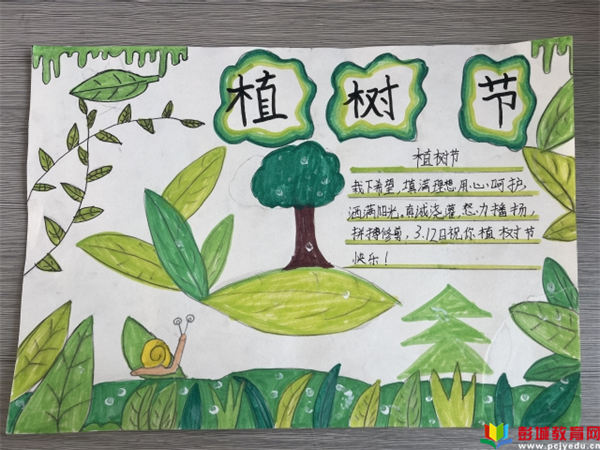 植树节
植树节
栽下希望,填满理想,用心呵护,
洒满阳光,真诚浇灌,努力播扬,
拼搏修剪,3.12日祝你植树节
快乐!
彭城教育网
www.pcjyedu.cn